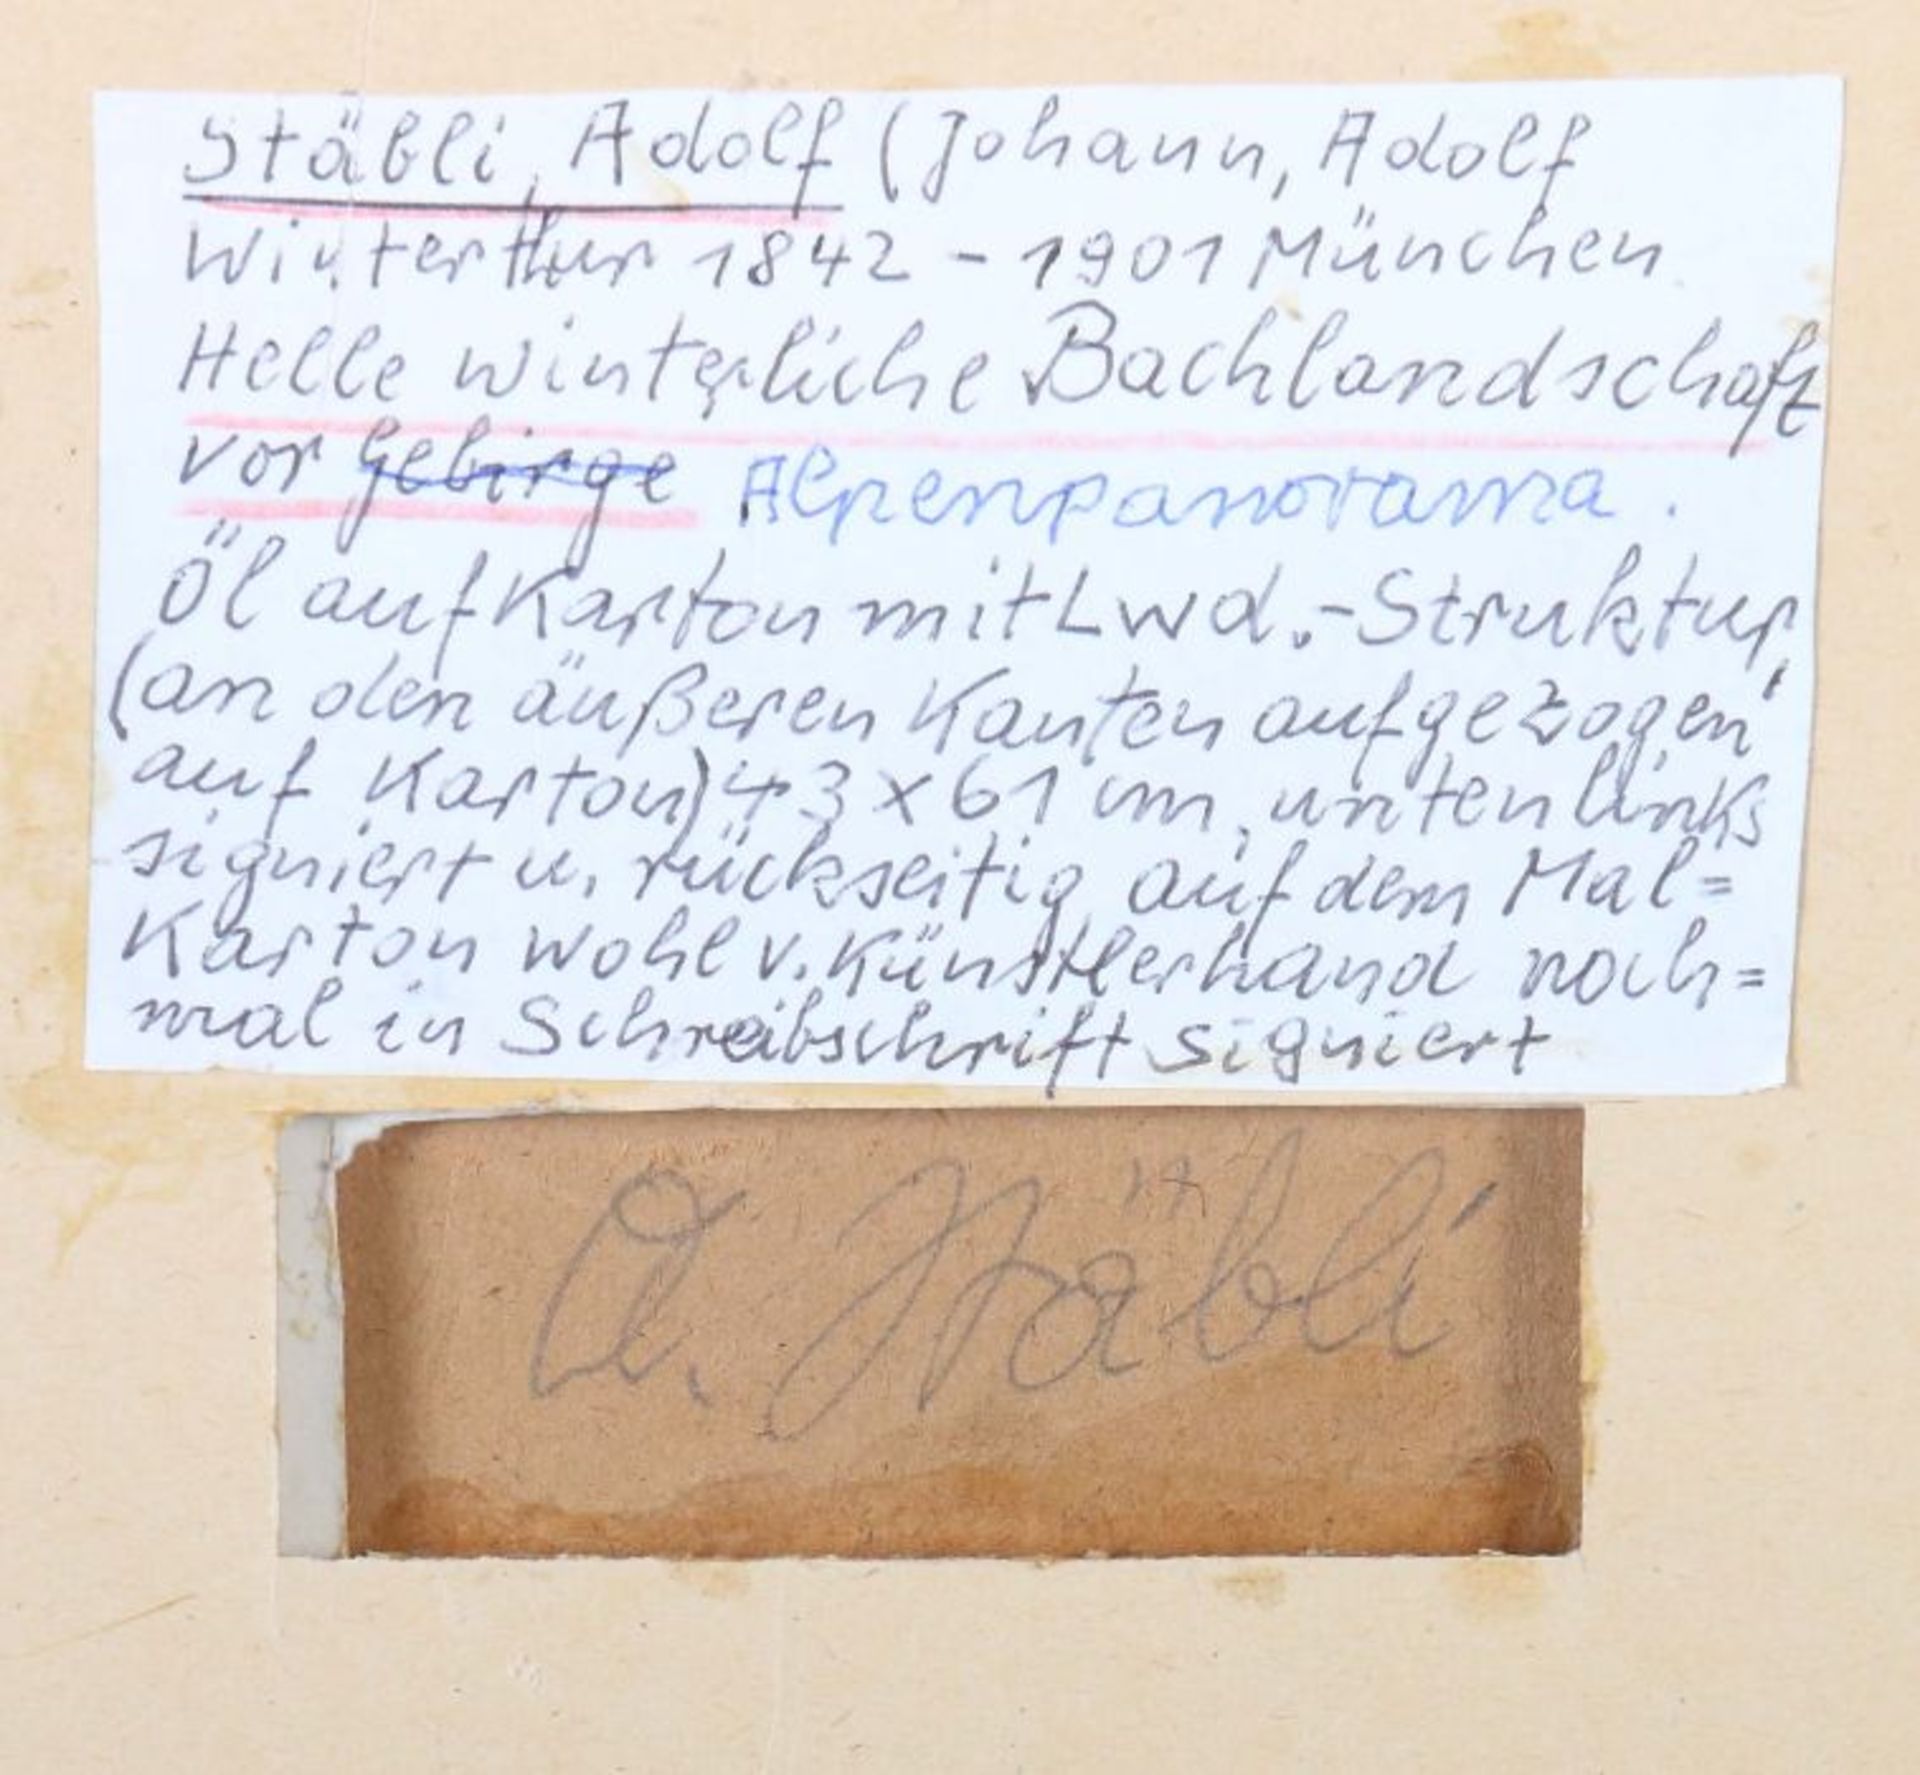 Stäbli, Adolf (Johann, Adolf
Winterthur 1842 - 1901 München
Helle winterliche Bachlandschaft
vor Gebirge Alpenpanorama.
Öl auf Karton mit Lwd.-Struktur,
(an den äußeren Kanten aufgezogen
auf Karton) 43 x 61 cm, unten links
signiert u. rückseitig auf dem Mal=
Karton wohl v. Künstlerhand noch=
mal in Schreibschrift signiert
A. Stäbli